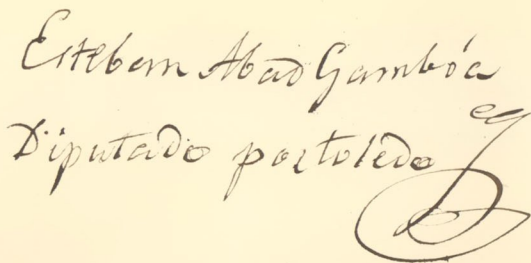 Esteban Abad Gambóa
Diputado por toledo